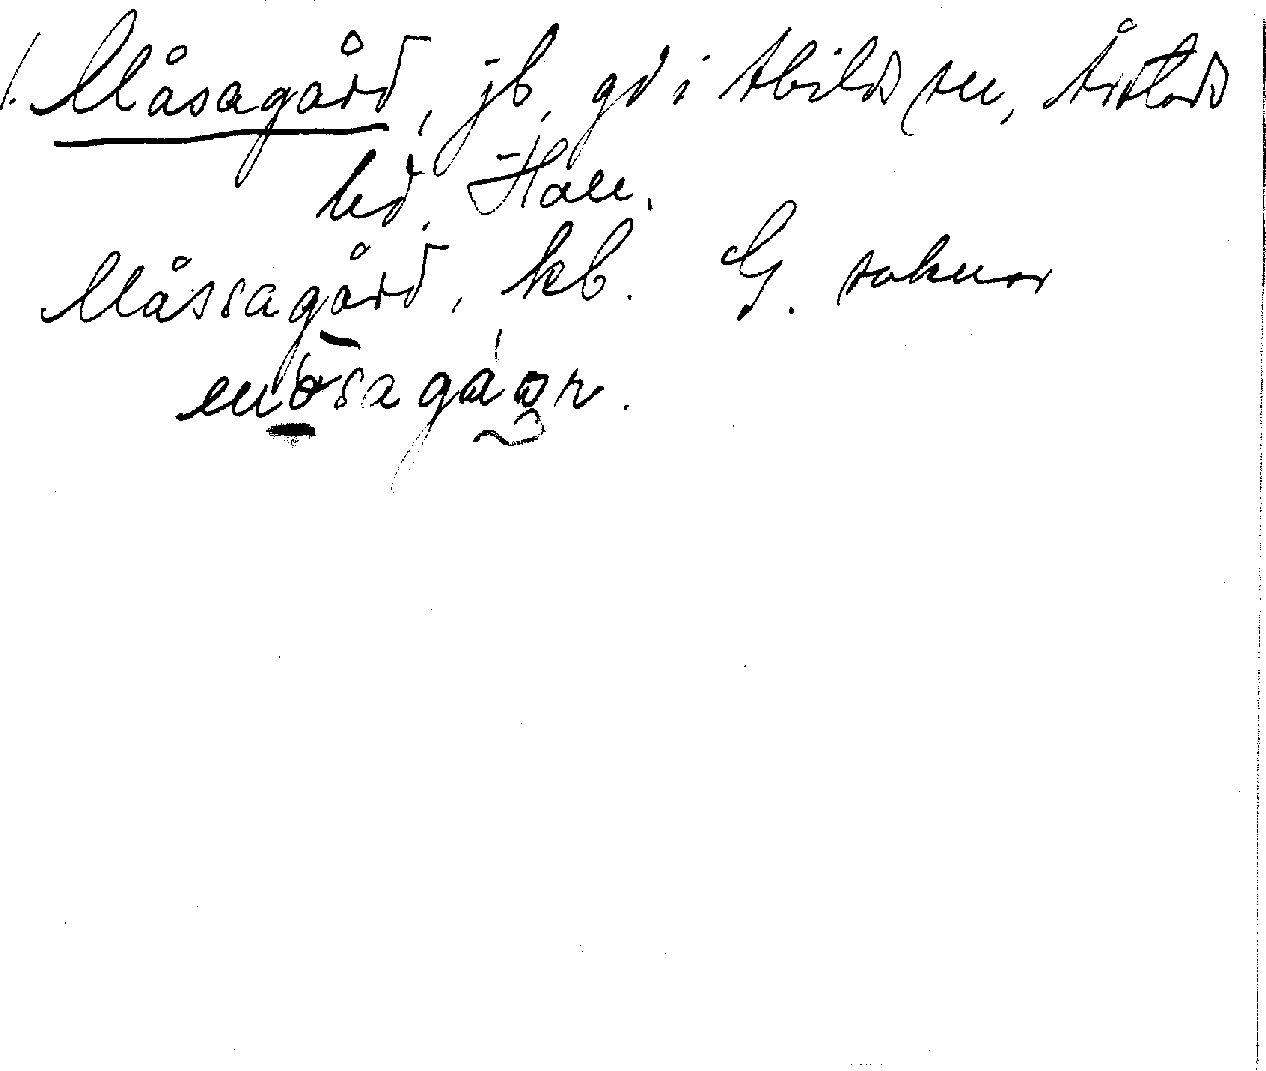 1. Måsagård, jb, gd i Abilds sn, Årstads
hd. Hall.
Måssagård, kb. G. saknar
mo̱sagágr.